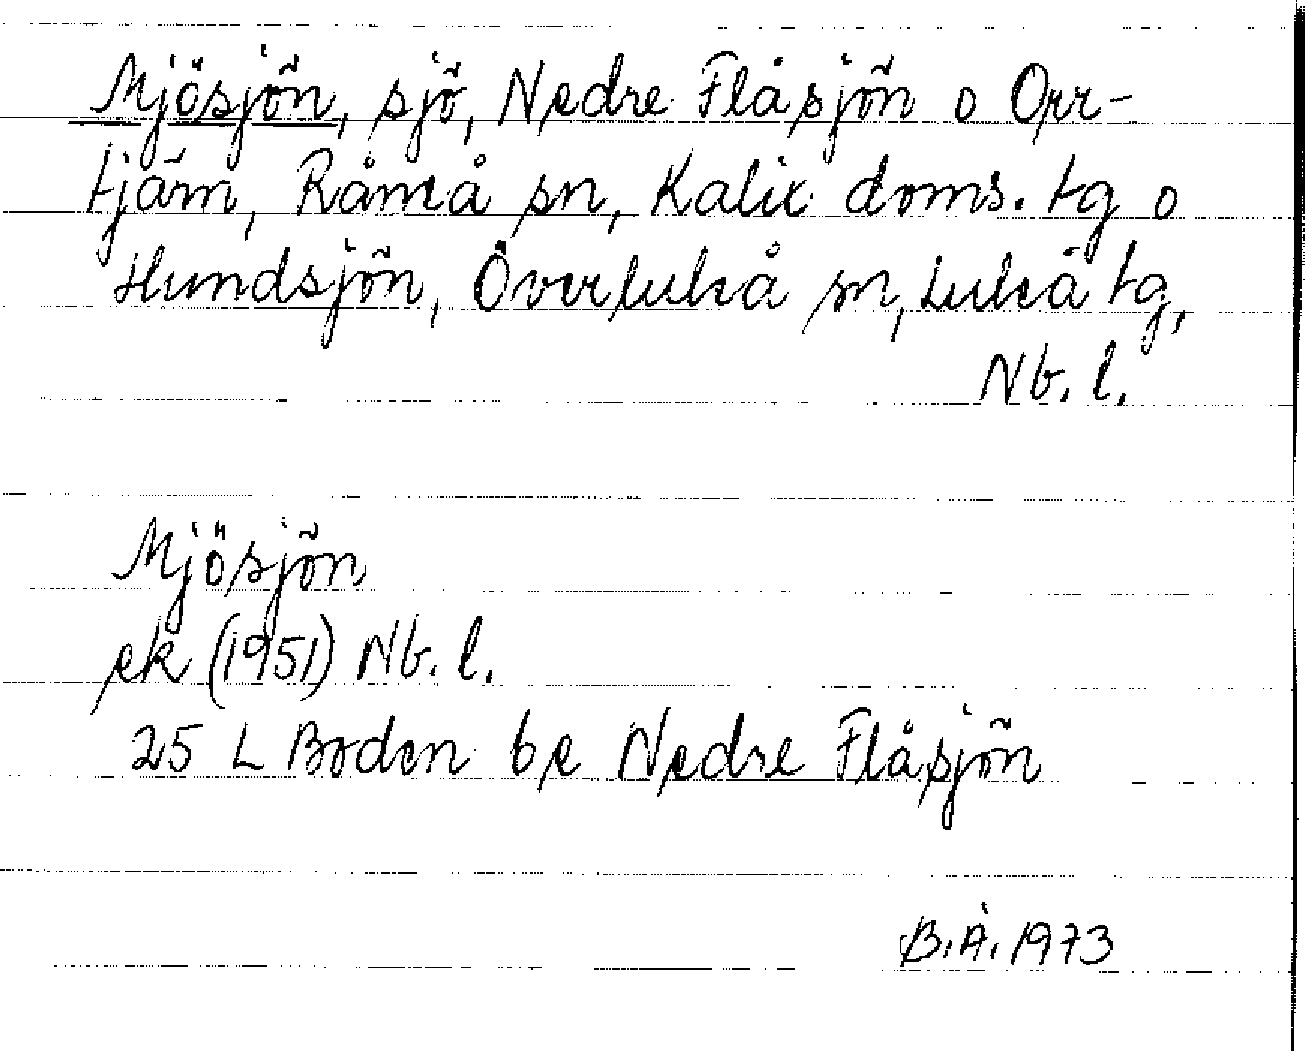 Mjösjön, sjö, Nedre Flåsjön o Orr-
tjärn, Råneå sn, Kalix doms. tg o
Hundsjön, Överluleå sn, Luleå tg,
Nb. l.
Mjösjön
ek (1951) Nb. l.
25 L Boden 6e Nedre Flåsjön
B.Å. 1973